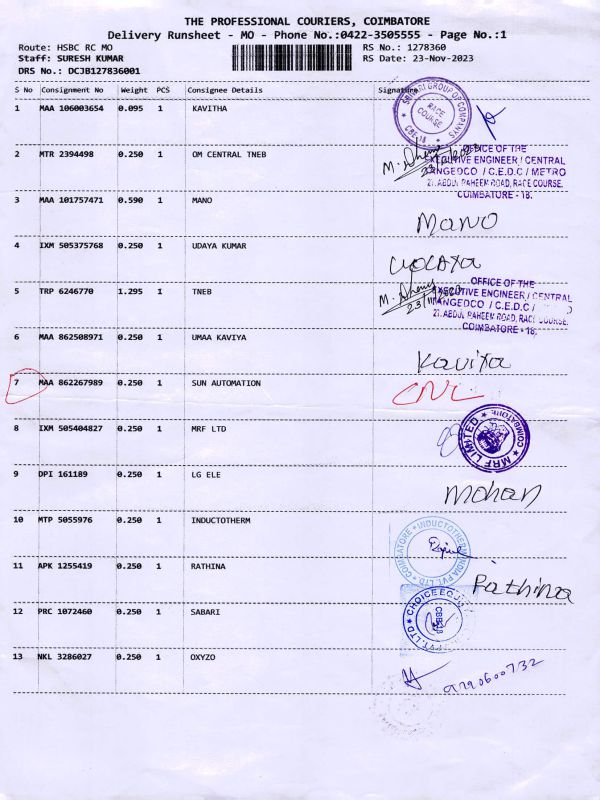 THE PROFESSIONAL COURIERS, COIMBATORE
Delivery Runsheet - MO - Phone No.:0422-3505555 - Page No.:1
Route: HSBC RC MO RS No.: 1278360
Staff: SURESH KUMAR RS Date: 23-Nov-2023
DRS No.: DCJB127836001
S No Consignment No Weight PCS Consignee Details Signature
1 MAA 106003654 0.095 1 KAVITHA
GROUP OF COMPANYS
RACE COURSE
CBE-18
2 MTR 2394498 0.250 1 OM CENTRAL TNEB
OFFICE OF THE
EXECUTIVE ENGINEER / CENTRAL
TANGEDCO / C.E.D.C / METRO
27, ABDUL RAHEEM ROAD, RACE COURSE,
COIMBATORE - 18.
3 MAA 101757471 0.590 1 MANO
Mano
4 IXM 505375768 0.250 1 UDAYA KUMAR
udaya
5 TRP 6246770 1.295 1 TNEB
OFFICE OF THE
EXECUTIVE ENGINEER / CENTRAL
TANGEDCO / C.E.D.C /
27, ABDUL RAHEEM ROAD, RACE COURSE,
COIMBATORE - 18.
23/11/2023
6 MAA 862508971 0.250 1 UMAA KAVIYA
Kaviya
7 MAA 862267989 0.250 1 SUN AUTOMATION
CNL
8 IXM 505404827 0.250 1 MRF LTD
MRF LIMITED
COIMBATORE
9 DPI 161189 0.250 1 LG ELE
Mohan
10 MTP 5055976 0.250 1 INDUCTOTHERM
INDUCTOTHERM INDIA PVT. LTD
COIMBATORE
11 APK 1255419 0.250 1 RATHINA
Rathina
12 PRC 1072460 0.250 1 SABARI
CHOICE
PVT. LTD
13 NKL 3286027 0.250 1 OXYZO